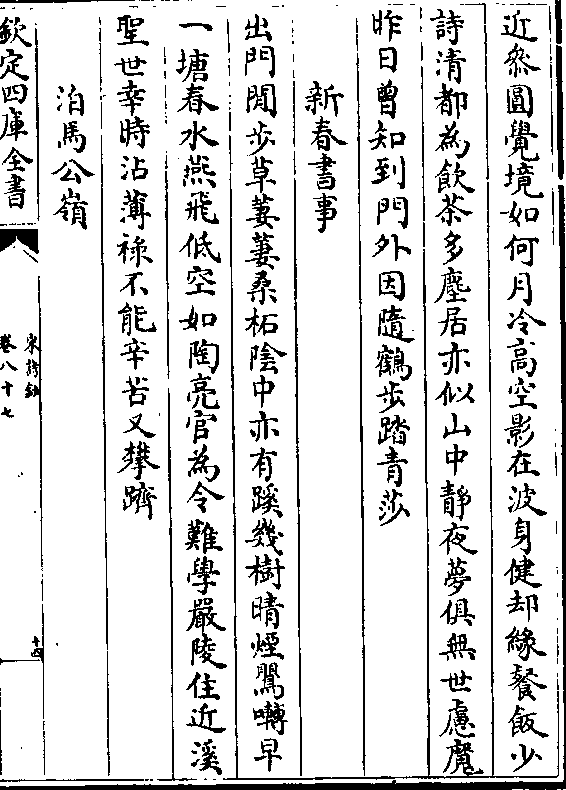 近參圓覺境如何月冷高空影在波身健却緣餐飯少
詩清都為飲茶多塵居亦似山中靜夜夢俱無世慮魔
昨日曾知到門外因隨鶴步踏青莎
新春書事
出門閒步草萋萋桑柘陰中亦有蹊幾樹晴煙鶯囀早
一塘春水燕飛低空如陶亮官為令難學嚴陵住近溪
聖世幸時沾薄祿不能辛苦又攀躋
泊馬公嶺
欽定四庫全書
宋詩鈔
卷八十七
十四